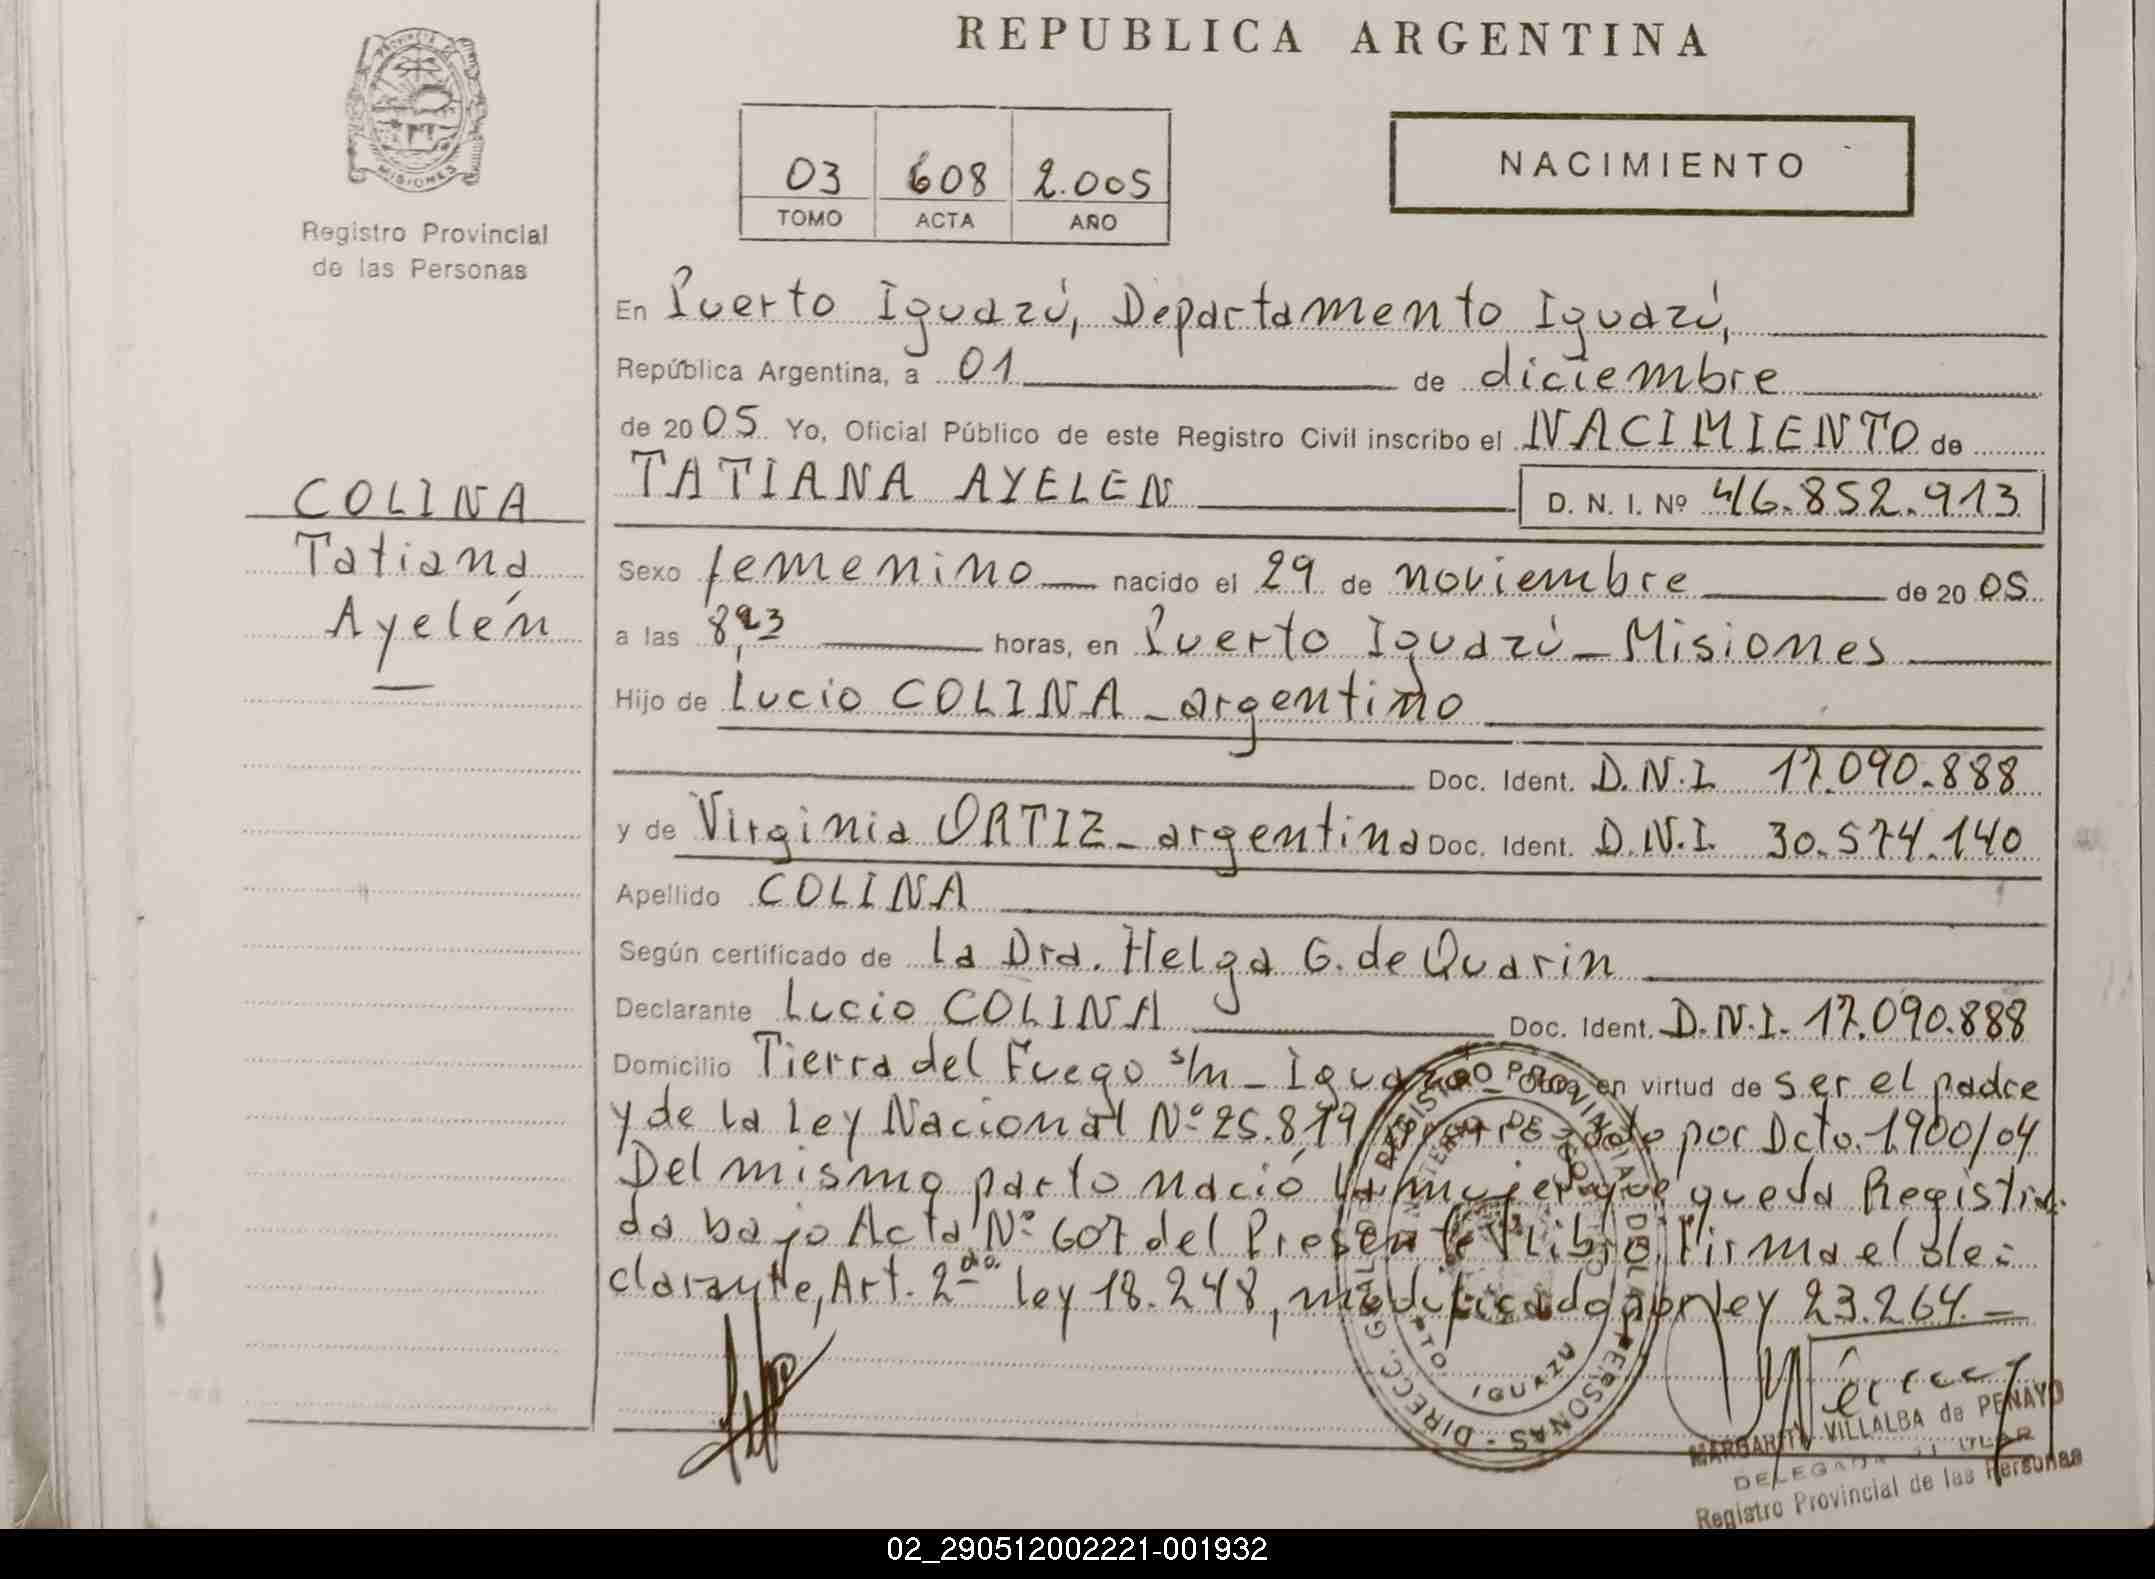 REPUBLICA ARGENTINA
PROVINCIA DE
MISIONES
Registro Provincial
de las Personas
03 608 2.005
TOMO ACTA AÑO
NACIMIENTO
COLINA
Tatiana
Ayelén
En Puerto Iguazú, Departamento Iguazú,
República Argentina, a 01 de diciembre
de 2005 Yo, Oficial Público de este Registro Civil inscribo el NACIMIENTO de
TATIANA AYELEN D. N. I. Nº 46.852.913
Sexo femenino nacido el 29 de noviembre de 2005
a las horas, en Puerto Iguazú - Misiones
Hijo de Lucio COLINA - argentino
Doc. Ident. D.N.I. 17.090.888
y de Virginia ORTIZ - argentina Doc. Ident. D.N.I. 30.574.140
Apellido COLINA
Según certificado de La Dra. Helga G. de Quarin
Declarante Lucio COLINA Doc. Ident. D.N.I. 17.090.888
Domicilio Tierra del Fuego s/n - Iguazú - Obra en virtud de ser el padre
y de la Ley Nacional Nº 25.819 por Dcto. 1.900/04
Del mismo parto nació mujer que queda Registra
da bajo Acta Nº 607 del Presente Libro. Firma el de-
clarante, Art. 2do. ley 18.248, modificado por ley 23.264.-
DIRECC. GRAL. REGISTRO PROVINCIAL DE LAS PERSONAS
PTO. IGUAZU
MARGARITA VILLALBA de PENAYO
DELEGADA TITULAR
Registro Provincial de las Personas
02_290512002221-001932